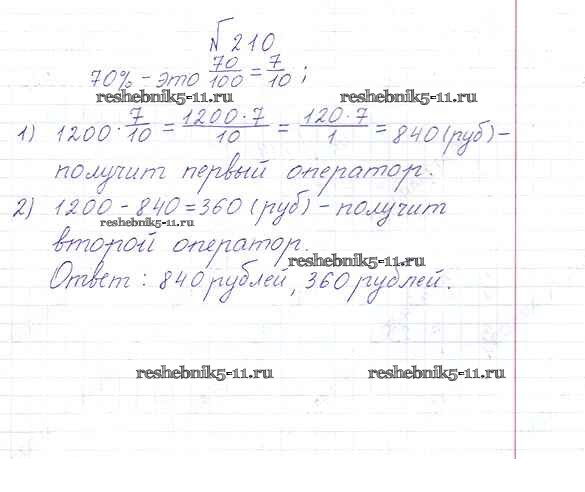 № 210
70% - это 70/100 = 7/10 ;
reshebnik5-11.ru reshebnik5-11.ru
1) 1200 · 7/10 = 1200 · 7/10 = 120 · 7/1 = 840 (руб) -
получит первый оператор.
2) 1200 - 840 = 360 (руб) - получит
reshebnik5-11.ru
второй оператор.
reshebnik5-11.ru
Ответ : 840 рублей, 360 рублей.
reshebnik5-11.ru reshebnik5-11.ru